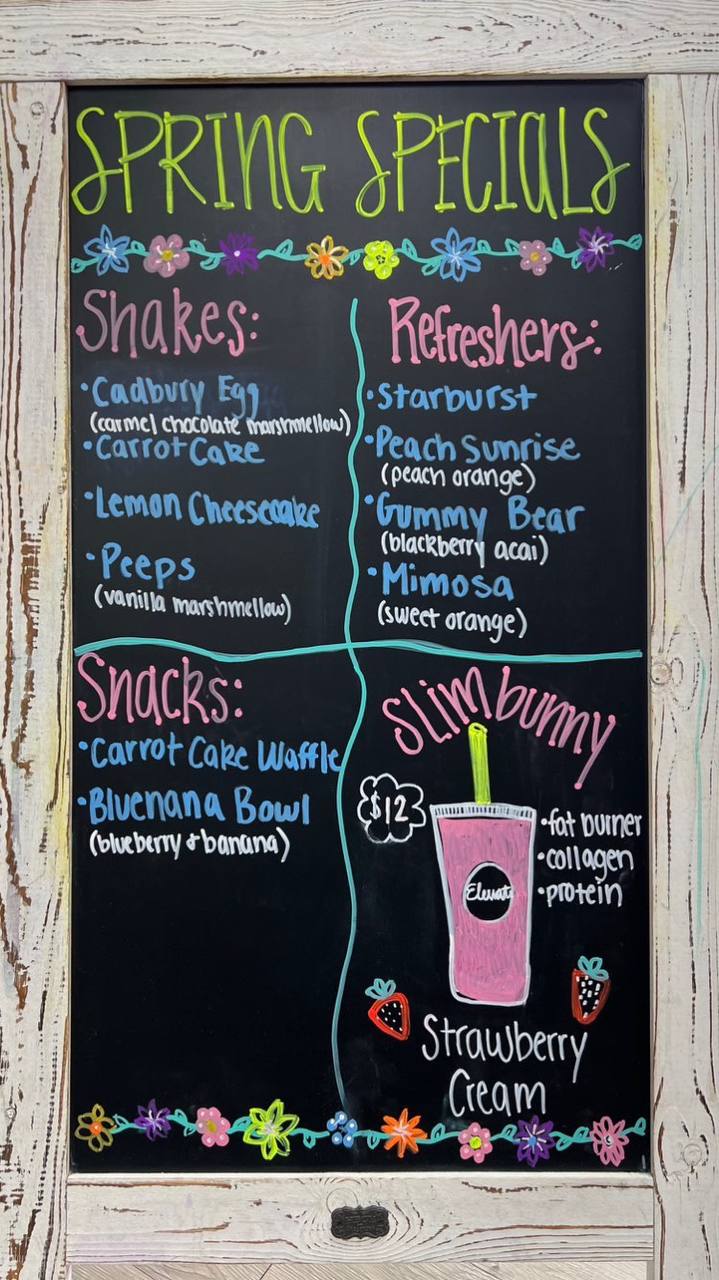 SPRING SPECIALS
Shakes:
•Cadbury Egg
(carmel chocolate marshmellow)
•Carrot Cake
•Lemon Cheesecake
•Peeps
(vanilla marshmellow)
Refreshers:
•Starburst
•Peach Sunrise
(peach orange)
•Gummy Bear
(blackberry acai)
•Mimosa
(sweet orange)
Snacks:
•Carrot Cake Waffle
•Bluenana Bowl
(blueberry & banana)
Slim bunny
$12
•fat burner
•collagen
•protein
Elevate
Strawberry
Cream